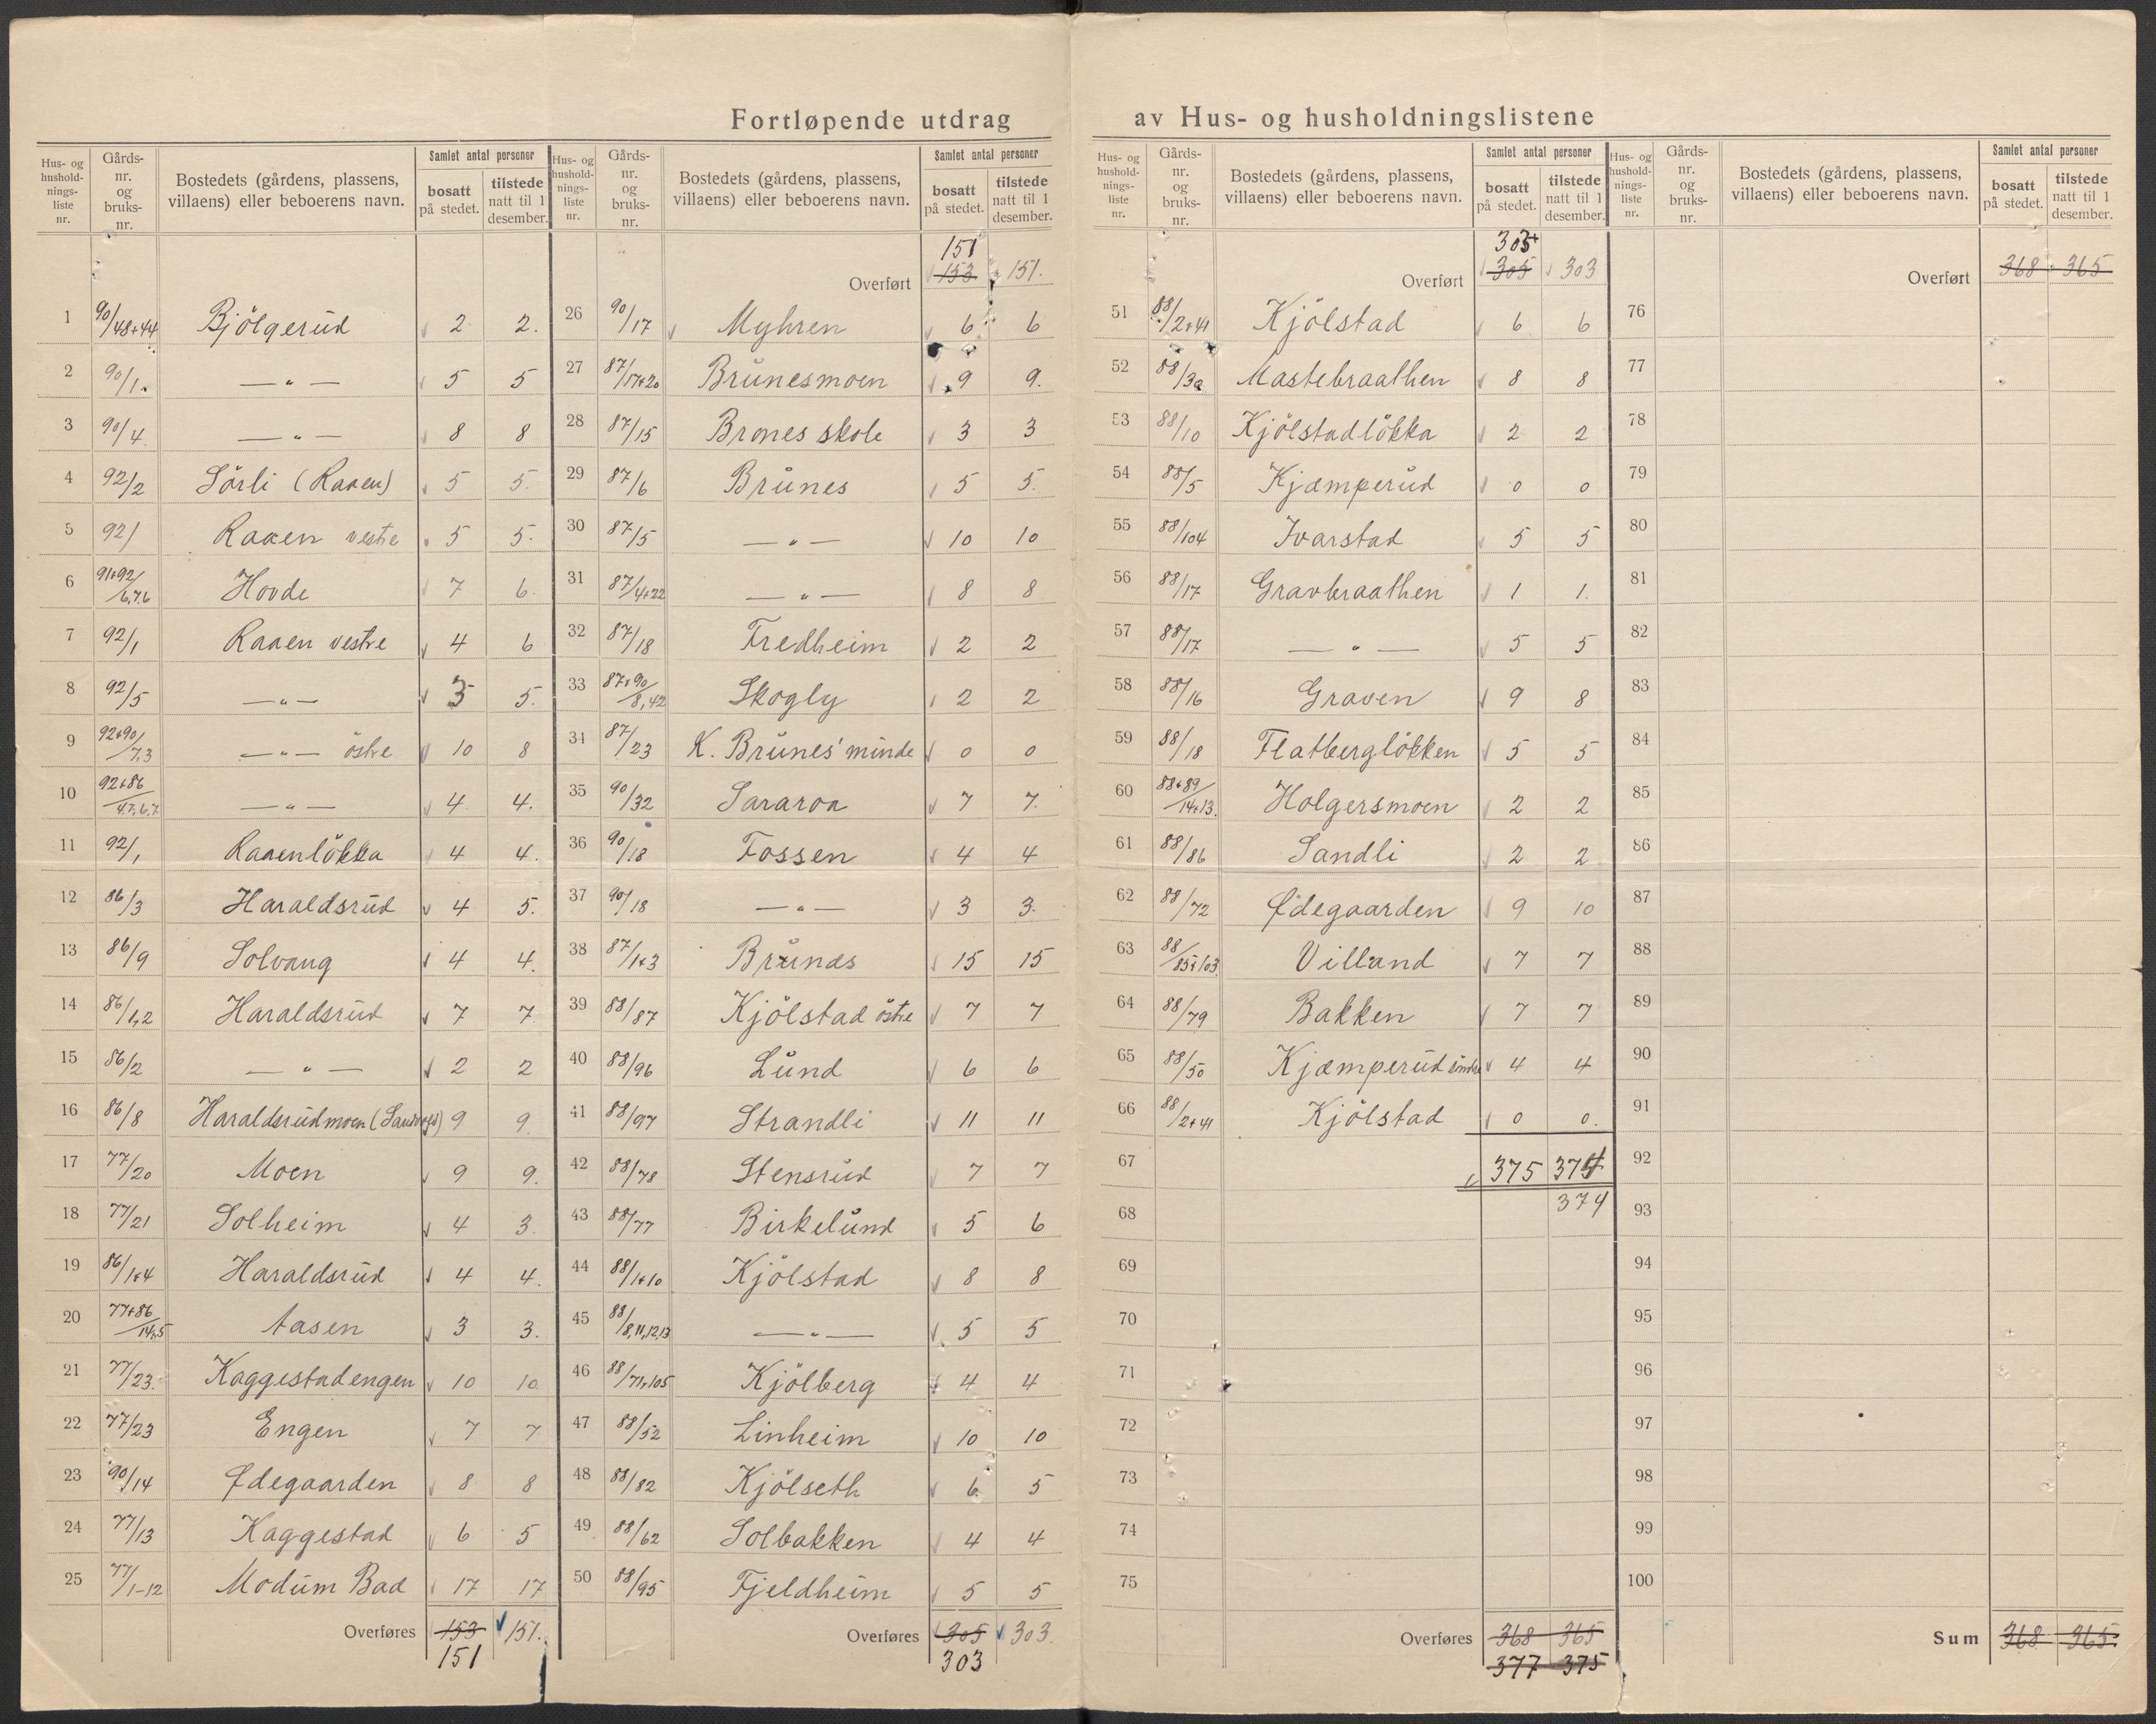 Fortløpende utdrag av Hus- og husholdningslistene
Hus- og hushold-nings-liste nr. Gårds-nr. og bruks-nr. Bostedets (gårdens, plassens, villaens) eller beboerens navn. Samlet antal personer bosatt på stedet. tilstede natt til 1 desember.
1 90/48+44 Bjölgerud 2 2.
2 90/1. — „ — 5 5
3 90/4 — „ — 8 8
4 92/2 Sörli (Raaen) 5 5.
5 92/ Raaen vestre 5 5.
6 91+92/6,7.6 Hovde 7 6.
7 92/1 Raaen vestre 4 6
8 92/5 — „ — 3 5.
9 92+90/7,3 — „ — östre 10 8
10 92+86/47,6,7 — „ — 4 4.
11 92/1 Raaenlökka 4 4.
12 86/3 Haraldsrud 4 5.
13 86/9 Solvang 4 4.
14 86/1,2 Haraldsrud 7 7
15 86/2 — „ — 2 2
16 86/8 Haraldsrudmoen (Sandvold) 9 9
17 77/20 Moen 9 9.
18 77/21 Solheim 4 3.
19 86/1+4 Haraldsrud 4 4.
20 77+86/14,5 Aasen 3 3.
21 77/23. Kaggestadengen 10 10
22 77/23 Engen 7 7
23 90/14 Ødegaarden 8 8
24 77/13 Kaggestad 6 5
25 77/1-12 Modum Bad 17 17
Overføres 153 151.
151
Hus- og hushold-nings-liste nr. Gårds-nr. og bruks-nr. Bostedets (gårdens, plassens, villaens) eller beboerens navn. Samlet antal personer bosatt på stedet. tilstede natt til 1 desember.
151
Overført 153 151.
26 90/17 Myhren 6 6
27 87/17+20 Brunesmoen 9 9.
28 87/15 Brones skole 3 3
29 87/6 Brunes 5 5.
30 87/5 — „ — 10 10
31 87/4+22 — „ — 8 8
32 87/18 Fredheim 2 2
33 87+90/8,42 Skogly 2 2
34 87/23 K. Brunes' minde 0 0
35 90/32 Sararoa 7 7.
36 90/18 Fossen 4 4
37 90/18 — „ — 3 3.
38 87/1+3 Brunes 15 15
39 88/87 Kjölstad östre 7 7
40 88/96 Lund 6 6
41 88/97 Strandli 11 11
42 88/78 Stensrud 7 7
43 88/77 Birkelund 5 6
44 88/1+10 Kjölstad 8 8
45 88/8,11,12,13 — „ — 5 5
46 88/71+105 Kjölberg 4 4
47 88/52 Linheim 10 10
48 88/82 Kjölseth 6 5
49 88/62 Solbakken 4 4
50 88/95 Fjeldheim 5 5
Overføres 305 303.
303
Hus- og hushold-nings-liste nr. Gårds-nr. og bruks-nr. Bostedets (gårdens, plassens, villaens) eller beboerens navn. Samlet antal personer bosatt på stedet. tilstede natt til 1 desember.
Overført 305 303
51 88/2+41 Kjölstad 6 6
52 88/3a Mastebraathen 8 8
53 88/10 Kjölstadlökka 2 2
54 88/5 Kjæmperud 0 0
55 88/104 Ivarstad 5 5
56 88/17 Gravbraathen 1 1.
57 88/17 — „ — 5 5
58 88/16 Graven 9 8
59 88/18 Flatberglökken 5 5
60 88+89/14+13. Holgersmoen 2 2
61 88/86 Sandli 2 2
62 88/72 Ødegaarden 9 10
63 88/85+103. Villand 7 7
64 88/79 Bakken 7 7
65 88/50 Kjæmperud 4 4
66 88/2+41 Kjölstad 0 0.
67 375 374
68 374
69
70
71
72
73
74
75
Overføres 368 365
377 375
Hus- og hushold-nings-liste nr. Gårds-nr. og bruks-nr. Bostedets (gårdens, plassens, villaens) eller beboerens navn. Samlet antal personer bosatt på stedet. tilstede natt til 1 desember.
Overført 368 365
76
77
78
79
80
81
82
83
84
85
86
87
88
89
90
91
92
93
94
95
96
97
98
99
100
Sum 368 365